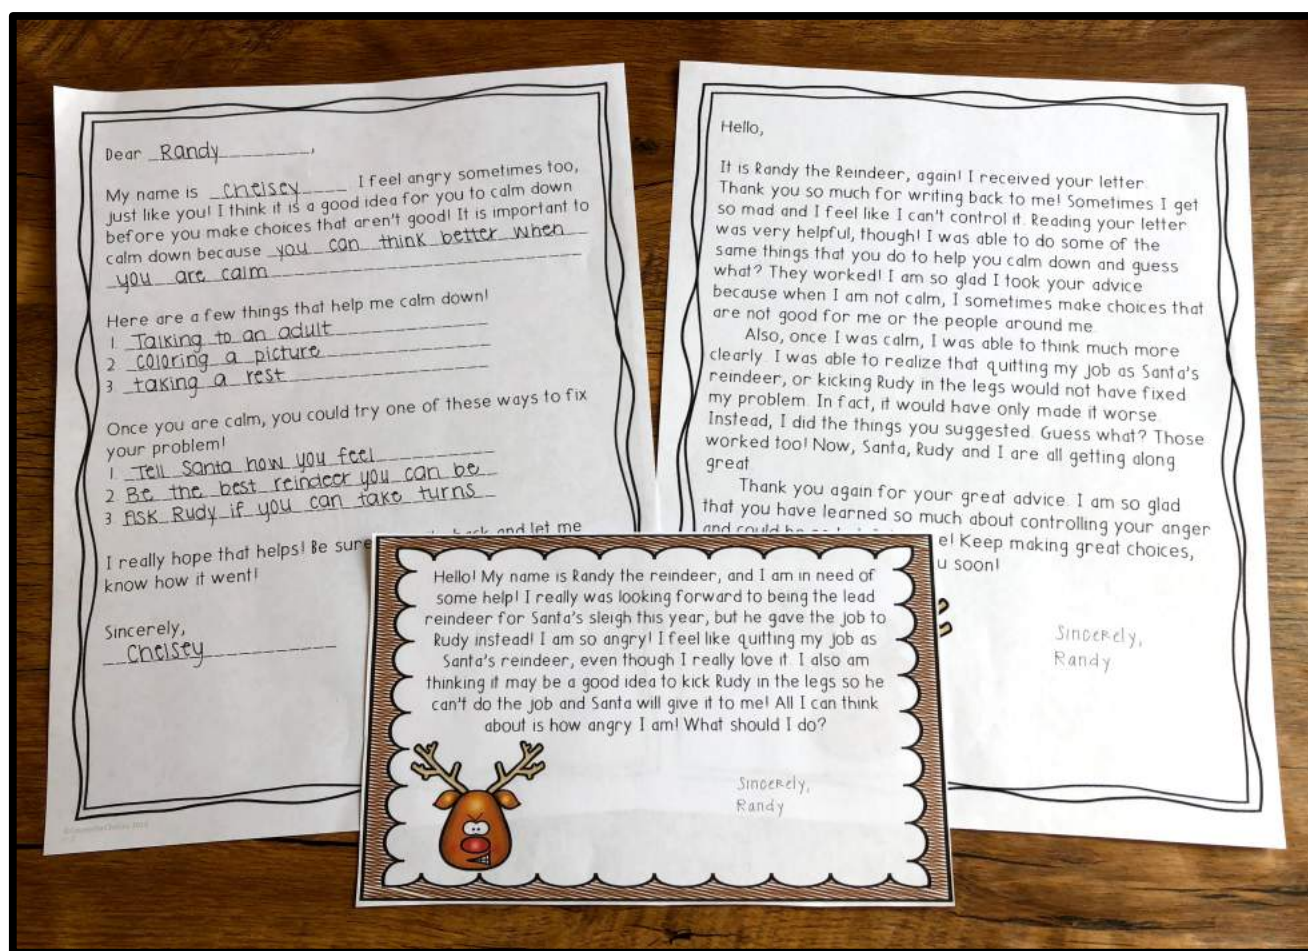 Dear Randy,
My name is Chelsey I feel angry sometimes too,
just like you! I think it is a good idea for you to calm down
before you make choices that aren't good! It is important to
calm down because you can think better when
you are calm
Here are a few things that help me calm down!
1 Talking to an adult
2 coloring a picture
3 taking a rest
Once you are calm, you could try one of these ways to fix
your problem!
1 Tell Santa how you feel
2 Be the best reindeer you can be
3 Ask Rudy if you can take turns
I really hope that helps! Be sure back and let me
know how it went!
Sincerely,
Chelsey
Hello,
It is Randy the Reindeer, again! I received your letter.
Thank you so much for writing back to me! Sometimes I get
so mad and I feel like I can't control it. Reading your letter
was very helpful, though! I was able to do some of the
same things that you do to help you calm down and guess
what? They worked! I am so glad I took your advice
because when I am not calm, I sometimes make choices that
are not good for me or the people around me.
Also, once I was calm, I was able to think much more
clearly. I was able to realize that quitting my job as Santa's
reindeer, or kicking Rudy in the legs would not have fixed
my problem. In fact, it would have only made it worse.
Instead, I did the things you suggested. Guess what? Those
worked too! Now, Santa, Rudy and I are all getting along
great.
Thank you again for your great advice. I am so glad
that you have learned so much about controlling your anger
and could e! Keep making great choices,
u soon!
Sincerely,
Randy
Hello! My name is Randy the reindeer, and I am in need of
some help! I really was looking forward to being the lead
reindeer for Santa's sleigh this year, but he gave the job to
Rudy instead! I am so angry! I feel like quitting my job as
Santa's reindeer, even though I really love it. I also am
thinking it may be a good idea to kick Rudy in the legs so he
can't do the job and Santa will give it to me! All I can think
about is how angry I am! What should I do?
Sincerely,
Randy